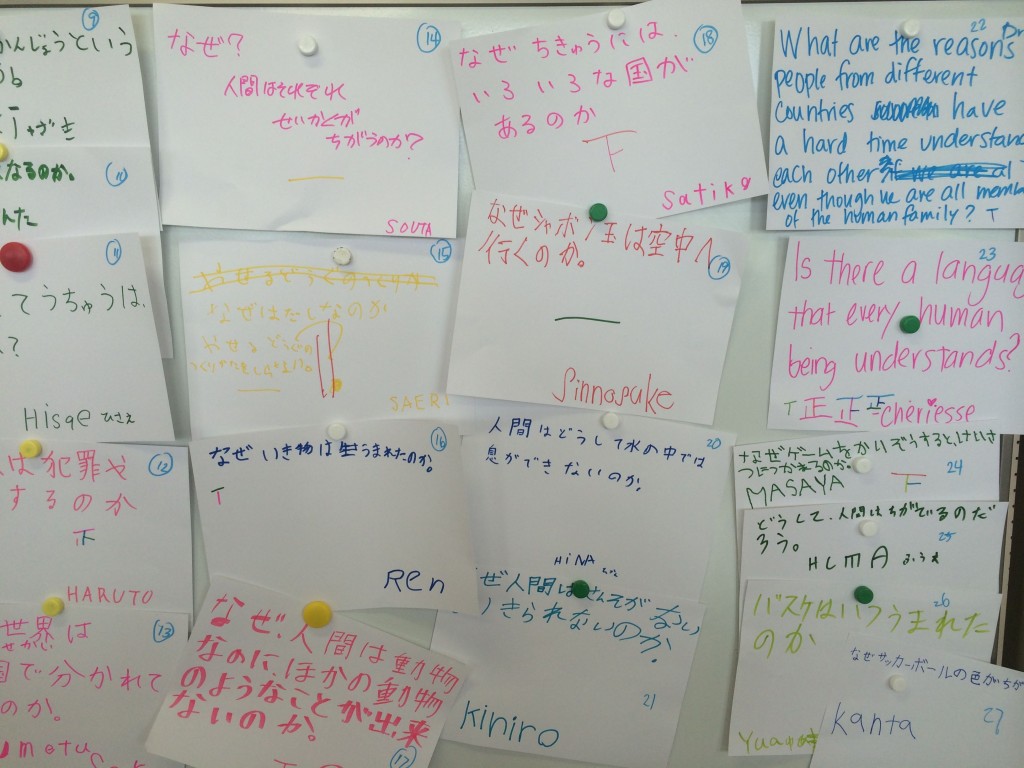 9
かんじょうという
11
なるのか。
んた
11
てうちゅうは、
?
Hisae ひさえ
12
は犯罪や
するのか
下
HARUTO
13
世界は
せかい
国で分かれて
のか。
14
なぜ?
人間はそれぞれ
せいかくが
ちがうのか?
SOUTA
15
なぜはたしなのか
SAERI
16
なぜいき物は生うまれたのか。
T
Ren
なぜ、人間は動物
なのにほかの動物
のようなことが出来
ないのか。
T
17
18
なぜちきゅうには、
いろいろな国が
あるのか
下
Satiko
なぜシャボン玉は空中へ
行くのか。
19
Sinnosuke
20
人間はどうして水の中では
息ができないのか。
HiNA
ぜ人間はさんそがない
きられないのか。
21
Kiniro
22
What are the reasons
people from different
countries have
a hard time understand
each other
even though we are all memb
of the human family? T
23
Is there a languag
that every human
being understands?
T 正 正 正 cheriesse
なぜゲームをかいぞうするとけいさ
つにつかまるのか。
24
MASAYA
下
どうして、人間はちがでいるのだ
ろう。
25
26
バスケはいつうまれた
のか
Yua
なぜサッカーボールの色がちが
Kanta
27